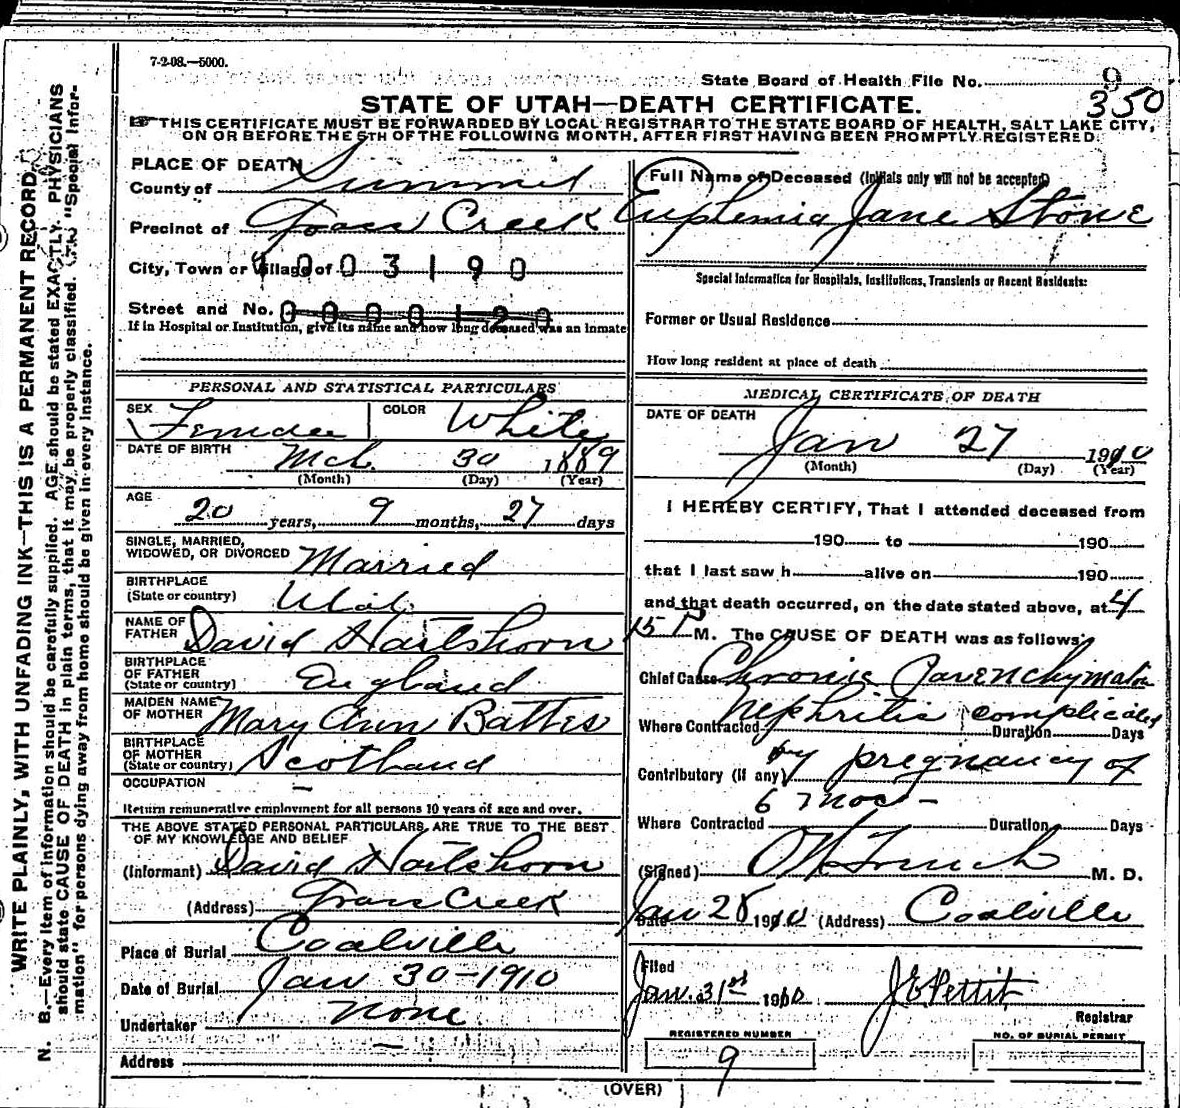 7-2-08.—5000.
State Board of Health File No. 9
350
STATE OF UTAH—DEATH CERTIFICATE.
THIS CERTIFICATE MUST BE FORWARDED BY LOCAL REGISTRAR TO THE STATE BOARD OF HEALTH, SALT LAKE CITY,
ON OR BEFORE THE 5TH OF THE FOLLOWING MONTH, AFTER FIRST HAVING BEEN PROMPTLY REGISTERED.
PLACE OF DEATH
County of Summit
Precinct of Grass Creek
City, Town or Village of 1003190
Street and No. 0000120
If in Hospital or Institution, give its name and how long deceased was an inmate
Full Name of Deceased (Initials only will not be accepted)
Euphemia Jane Stone
Special Information for Hospitals, Institutions, Transients or Recent Residents:
Former or Usual Residence
How long resident at place of death
PERSONAL AND STATISTICAL PARTICULARS
SEX Female COLOR White
DATE OF BIRTH Mch 30 1889
(Month) (Day) (Year)
AGE
20 years, 9 months, 27 days
SINGLE, MARRIED,
WIDOWED, OR DIVORCED Married
BIRTHPLACE
(State or country) Utah
NAME OF
FATHER David Hartshorn
BIRTHPLACE
OF FATHER
(State or country) England
MAIDEN NAME
OF MOTHER Mary Ann Battes
BIRTHPLACE
OF MOTHER
(State or country) Scotland
OCCUPATION —
Return remunerative employment for all persons 10 years of age and over.
THE ABOVE STATED PERSONAL PARTICULARS ARE TRUE TO THE BEST
OF MY KNOWLEDGE AND BELIEF
(Informant) David Hartshorn
(Address) Grass Creek
Place of Burial Coalville
Date of Burial Jan 30-1910
Undertaker None
Address —
MEDICAL CERTIFICATE OF DEATH
DATE OF DEATH
Jan 27 1910
(Month) (Day) (Year)
I HEREBY CERTIFY, That I attended deceased from
190 to 190
that I last saw h alive on 190
and that death occurred, on the date stated above, at 4
15 P M. The CAUSE OF DEATH was as follows:
Chief Cause Chronic Parenchymatous
Nephritis complicated
Where Contracted Duration Days
Contributory (if any) by pregnancy of
6 mos -
Where Contracted Duration Days
(Signed) M. D.
Date Jan 28 1910 (Address) Coalville
Filed
Jan. 31st 1910 J E Pettit
Registrar
REGISTERED NUMBER
9
NO. OF BURIAL PERMIT
(OVER)
WRITE PLAINLY, WITH UNFADING INK—THIS IS A PERMANENT RECORD.
N. B.—Every item of information should be carefully supplied. AGE should be stated EXACTLY. PHYSICIANS
should state CAUSE OF DEATH in plain terms, that it may be properly classified. The "Special Infor-
mation" for persons dying away from home should be given in every instance.